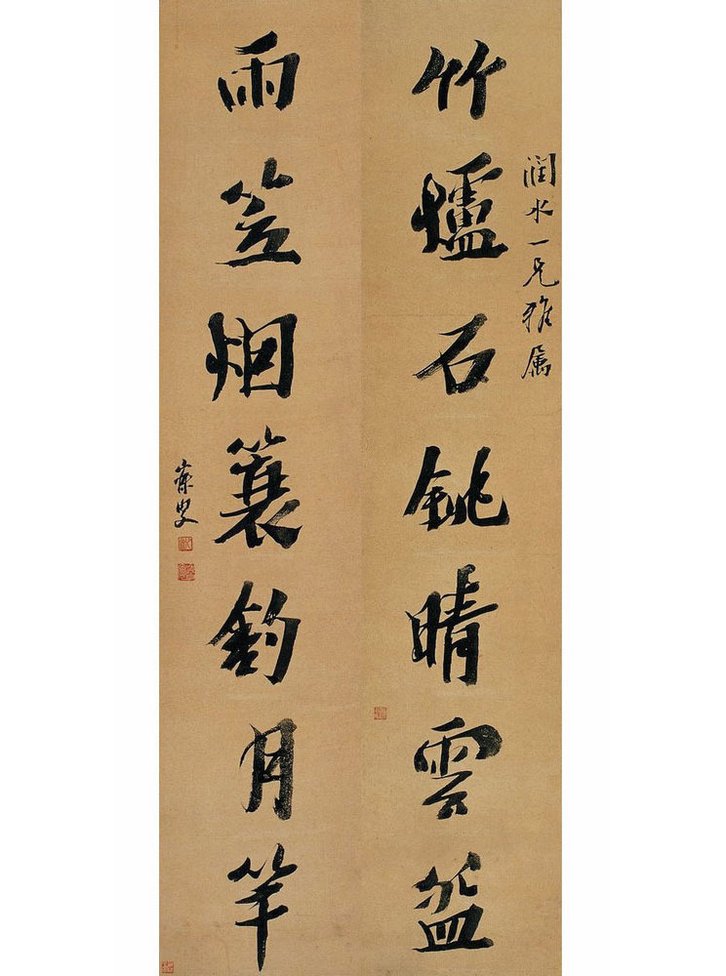 潤水一兄雅属
竹爐石銚晴雲盌
雨笠烟簑釣月竿